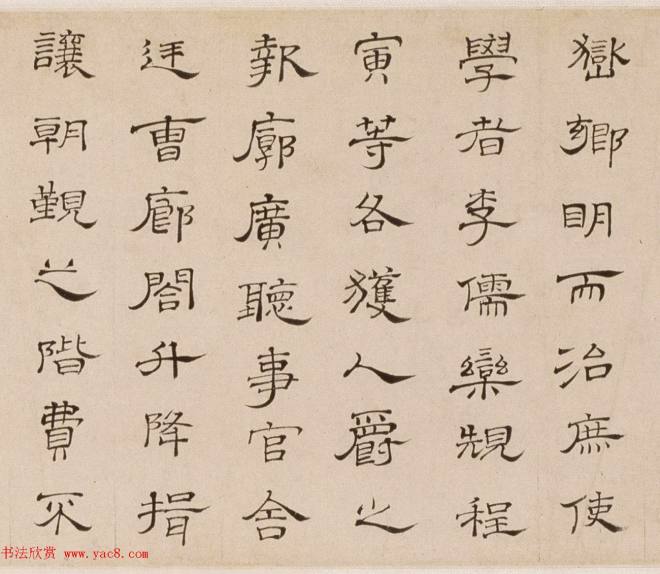 嶽鄉明而治庶使
學者李儒欒規程
寅等各獲人爵之
報廓廣聽事官舍
廷曹廊閤升降揖
讓朝覲之階費不
书法欣赏 www.yac8.com